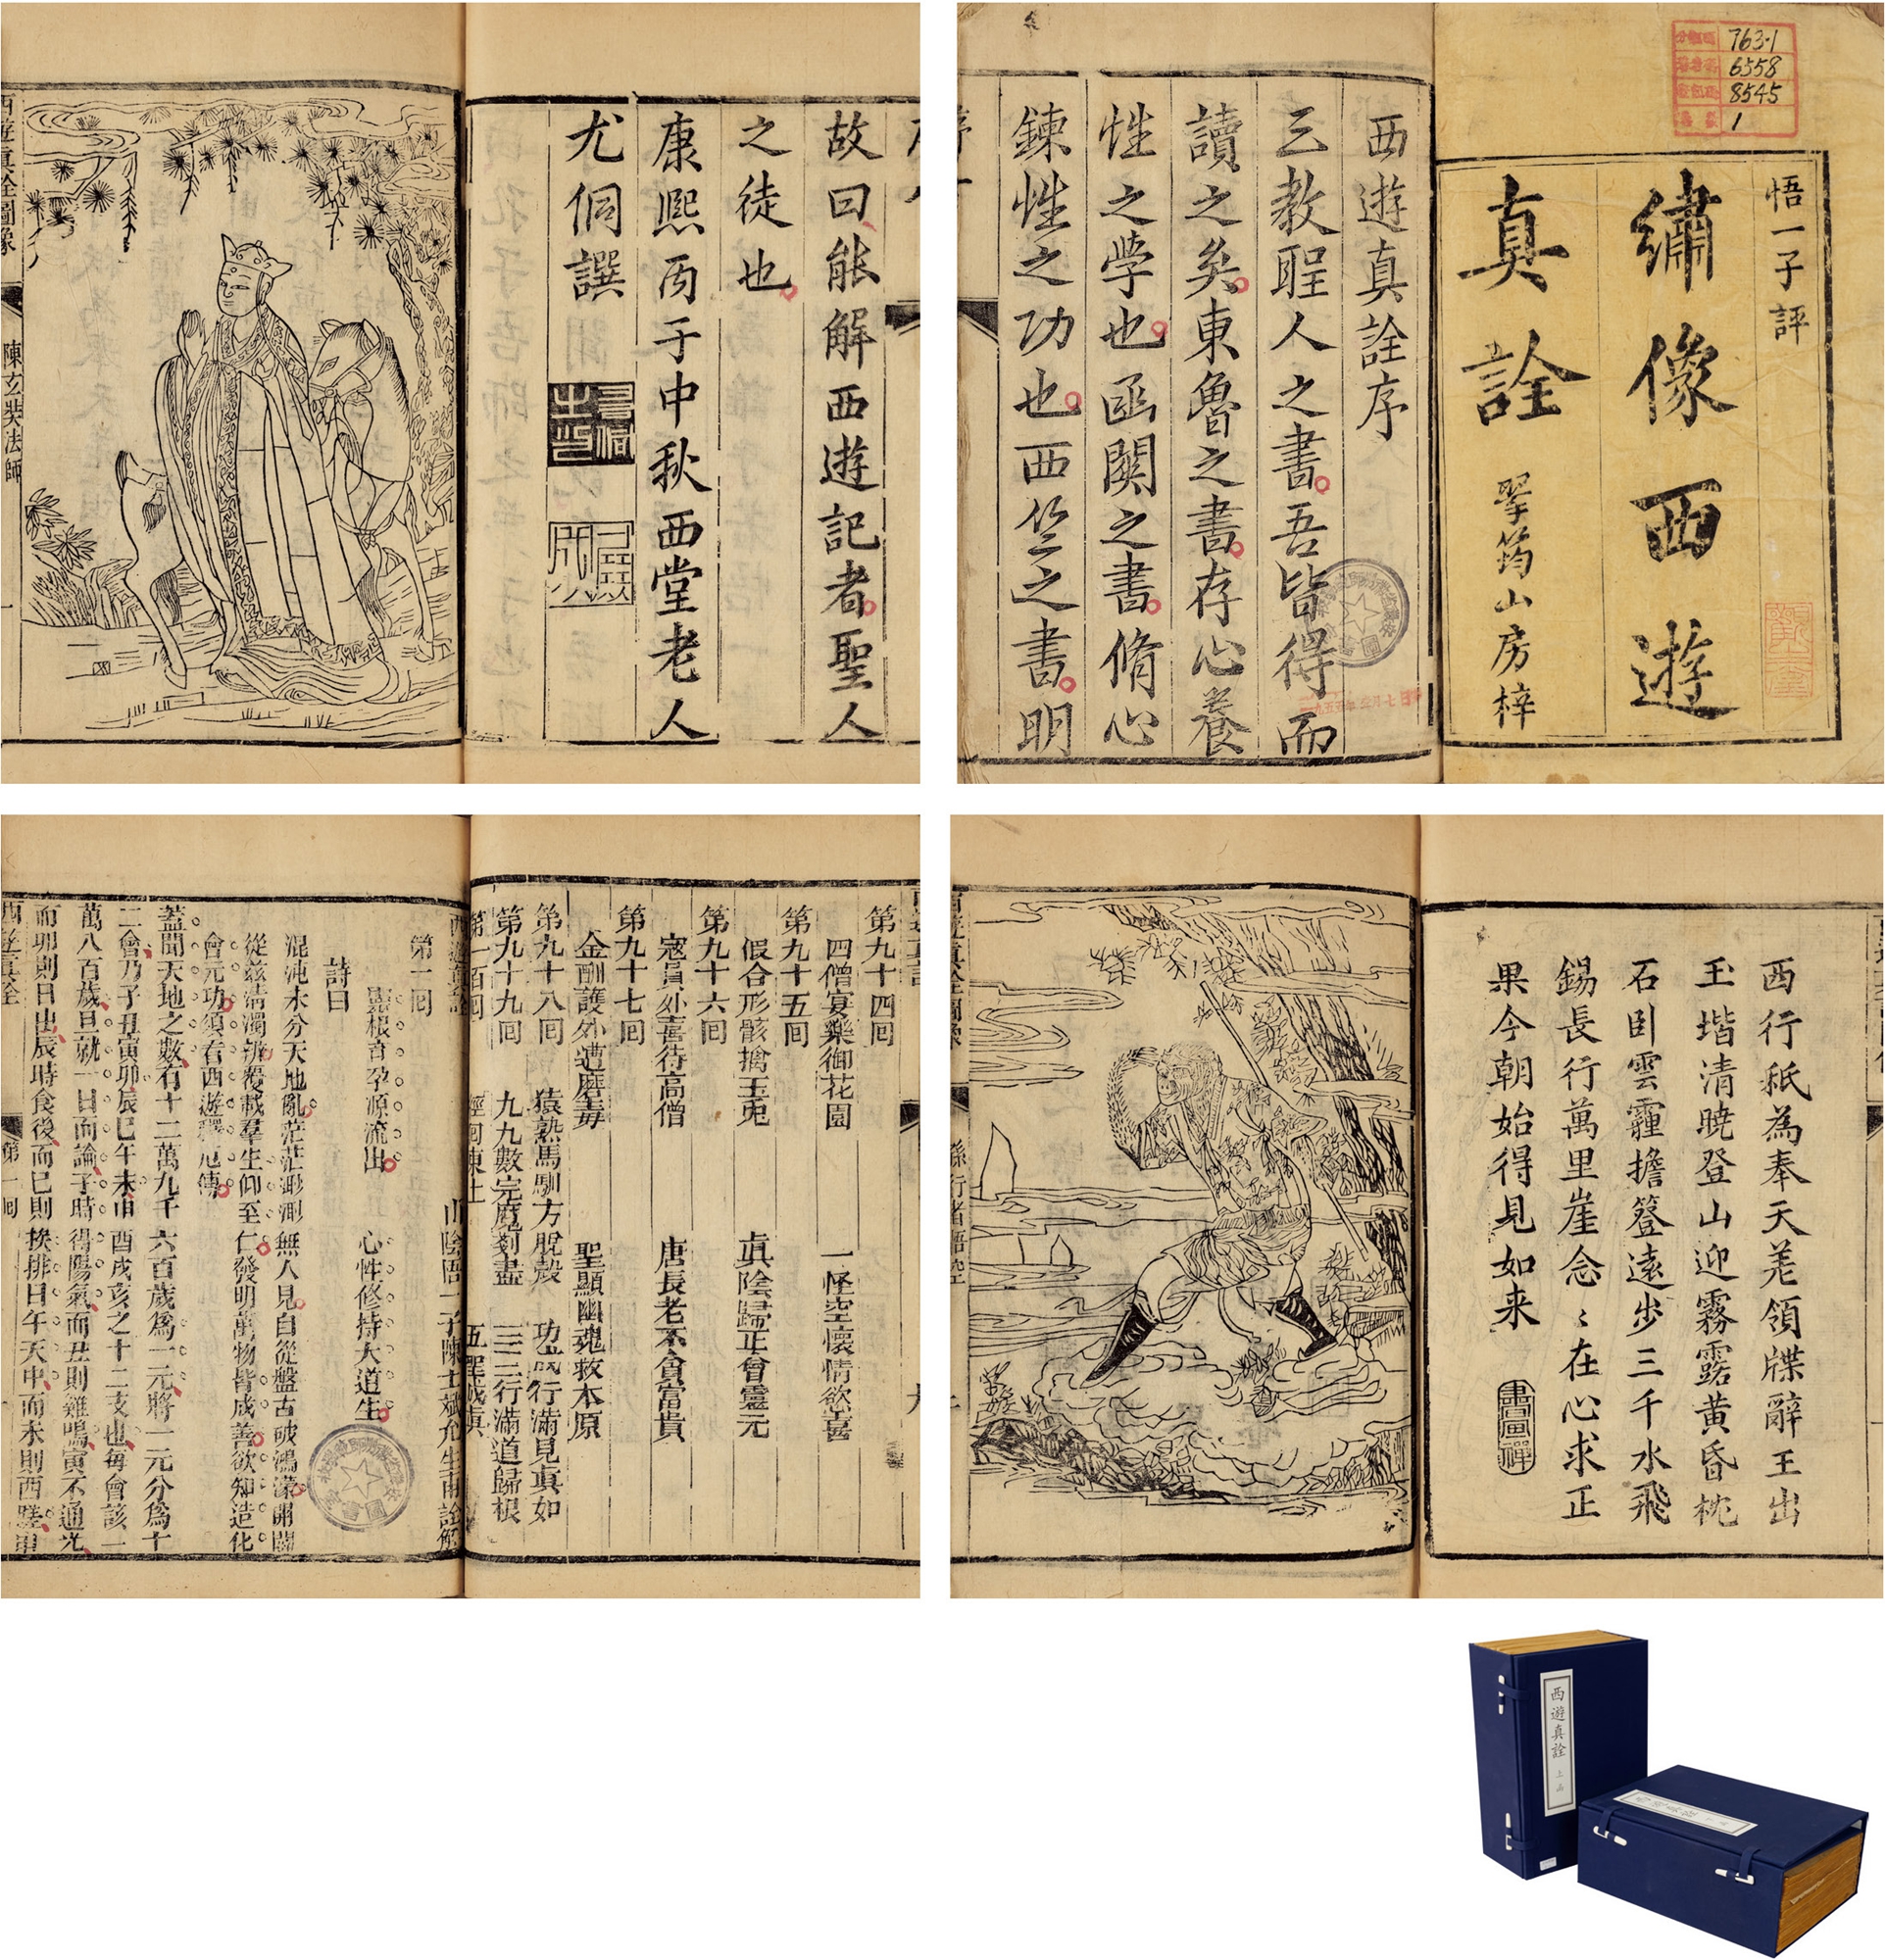 悟一子評
繡像西遊
真詮
翠筠山房梓
763·1
6558
8545
1
西遊真詮序
三教聖人之書吾皆得而
讀之矣東魯之書存心養
性之學也函関之書脩心
鍊性之功也西竺之書明
故曰能解西遊記者聖人
之徒也
康熙丙子中秋西堂老人
尤侗譔
西遊真詮圖像
陳玄奘法師
西行秖為奉天差領牒辭王出
玉堦清曉登山迎霧露黃昏枕
石臥雲霾擔簦遠步三千水飛
錫長行萬里崖念〻在心求正
果今朝始得見如来
畫禪
孫行者悟空
第九十四囘
四僧宴樂御花園 一怪空懷情慾喜
第九十五囘
假合形骸擒玉兎 眞陰歸正會靈元
第九十六囘
寇員外喜待高僧 唐長老不貪富貴
第九十七囘
金酬護外遭魔毒 聖顯幽魂救本原
第九十八囘 猿熟馬馴方脫殼 功成行滿見真如
第九十九囘 九九數完魔剗盡 三三行滿道歸根
第一百囘 徑囘東土 五聖成真
西遊真詮
山陰悟一子陳士斌允生甫詮解
第一囘
靈根育孕源流出 心性修持大道生
詩曰
混沌未分天地亂茫茫渺渺無人見自從盤古破鴻濛開闢
從兹清濁辨覆載羣生仰至仁發明萬物皆成善欲知造化
會元功須看西遊釋厄傳
蓋聞天地之數有十二萬九千六百歲爲一元將一元分爲十
二會乃子丑寅卯辰巳午未申酉戌亥之十二支也每會該一
萬八百歲且就一日而論子時得陽氣而丑則雞鳴寅不通光
而卯則日出辰時食後而巳則挨排日午天中而未則西蹉申
西遊真詮
第一囘
西遊真詮 上函